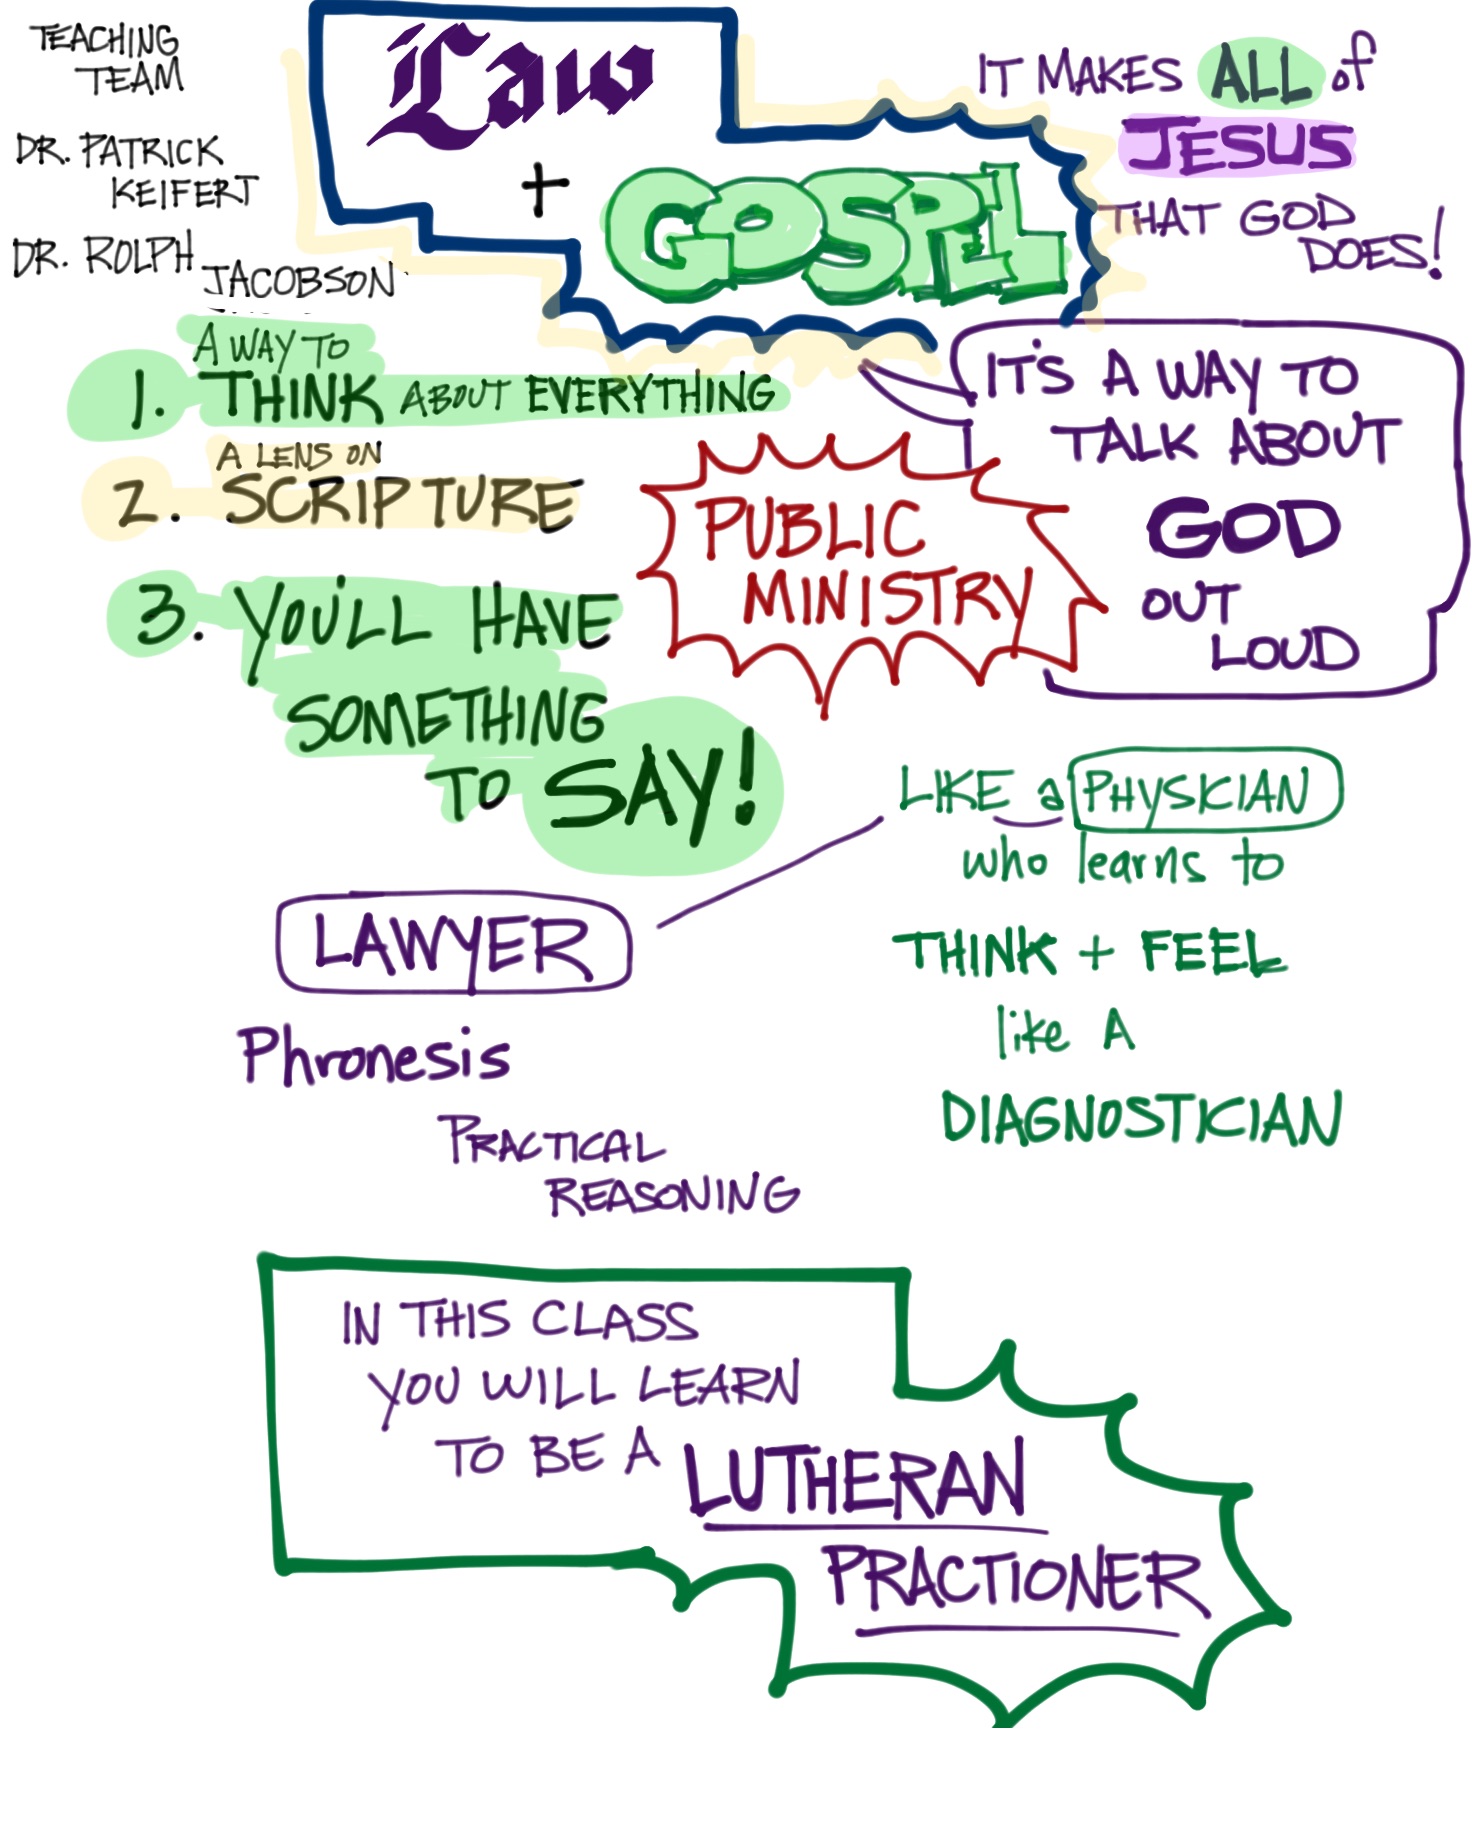 TEACHING
TEAM
DR. PATRICK
KEIFERT
DR. ROLPH
JACOBSON
Law
+
GOSPEL
IT MAKES ALL of
JESUS
THAT GOD
DOES!
A WAY TO
1. THINK ABOUT EVERYTHING
A LENS ON
2. SCRIPTURE
3. YOU'LL HAVE
SOMETHING
TO SAY!
IT'S A WAY TO
TALK ABOUT
GOD
OUT
LOUD
PUBLIC
MINISTRY
LIKE a PHYSICIAN
who learns to
THINK + FEEL
like A
DIAGNOSTICIAN
LAWYER
Phronesis
PRACTICAL
REASONING
IN THIS CLASS
YOU WILL LEARN
TO BE A LUTHERAN
PRACTIONER